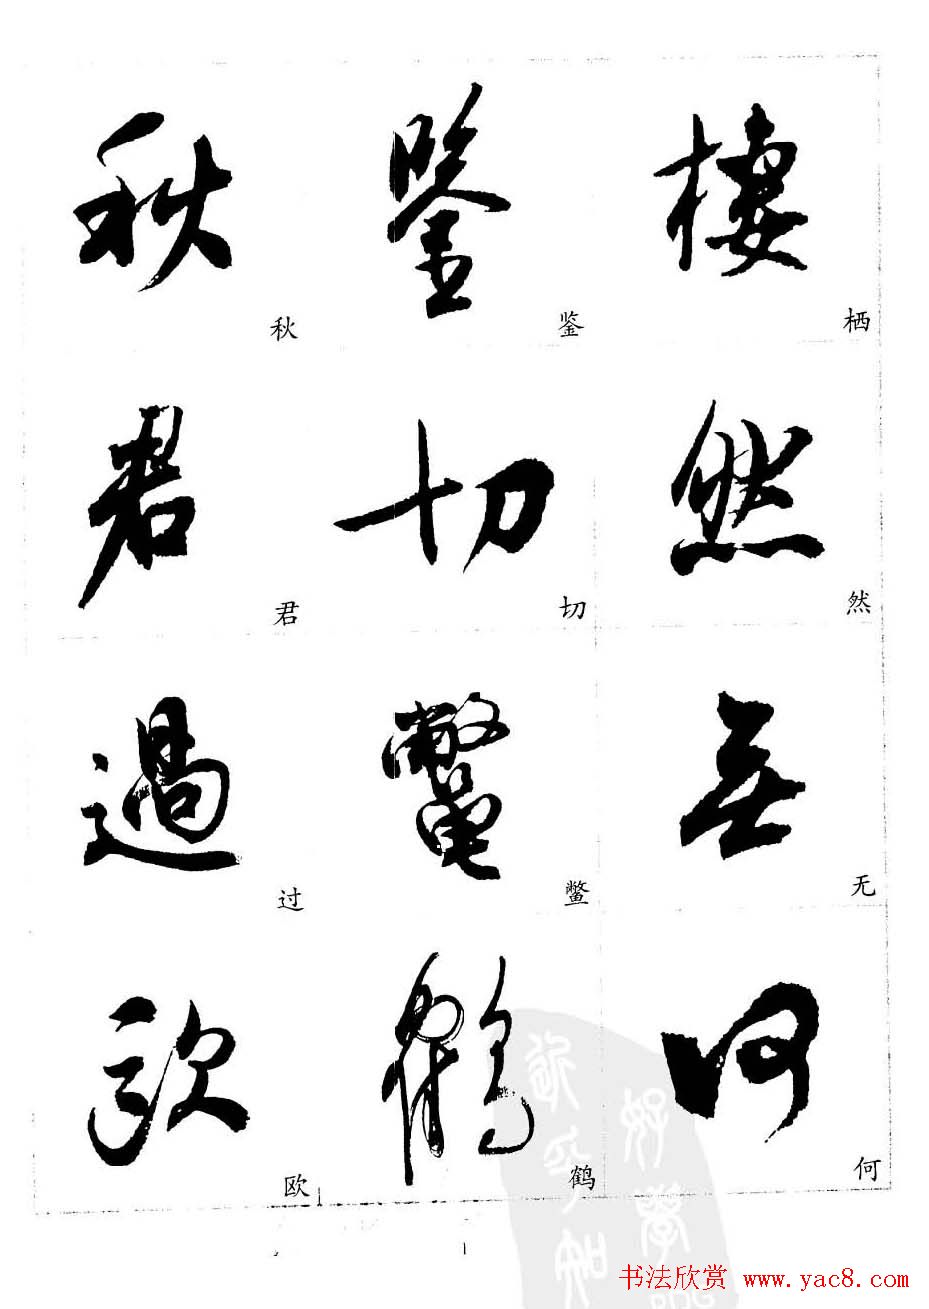 秋 鉴 棲
秋 鉴 栖
君 切 然
君 切 然
過 鼈 無
过 鳖 无
歐 鶴 何
欧 鹤 何
1
书法欣赏 www.yac8.com